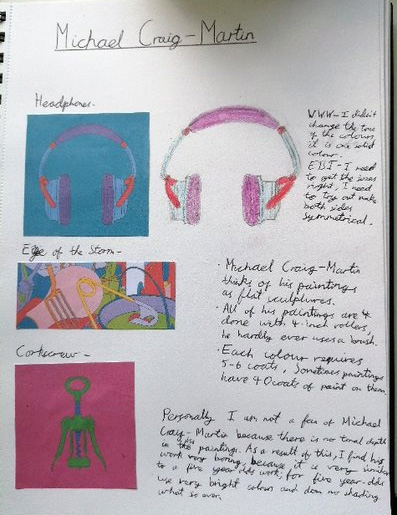 Michael Craig-Martin
Headphones.
WWW- I didn't
change the tone
of the colours,
it is one solid
colour.
EBI- I need
to get the lines
right, I need
to try out make
both sides
symmetrical.
Eye of the Storm-
· Michael Craig-Martin
thinks of his paintings
as flat sculptures.
· All of his paintings are
done with 4-inch rollers,
he hardly ever uses a brush.
· Each colour requires
5-6 coats, Sometimes paintings
have 40 coats of paint on them.
Corkscrew -
Personally I am not a fan of Michael
Craig-Martin because there is no tonal depth
in the paintings. As a result of this, I find his
work very boring, because it is very similar
to a five year olds work, for five year-olds
use very bright colours and does no shading
what so ever.